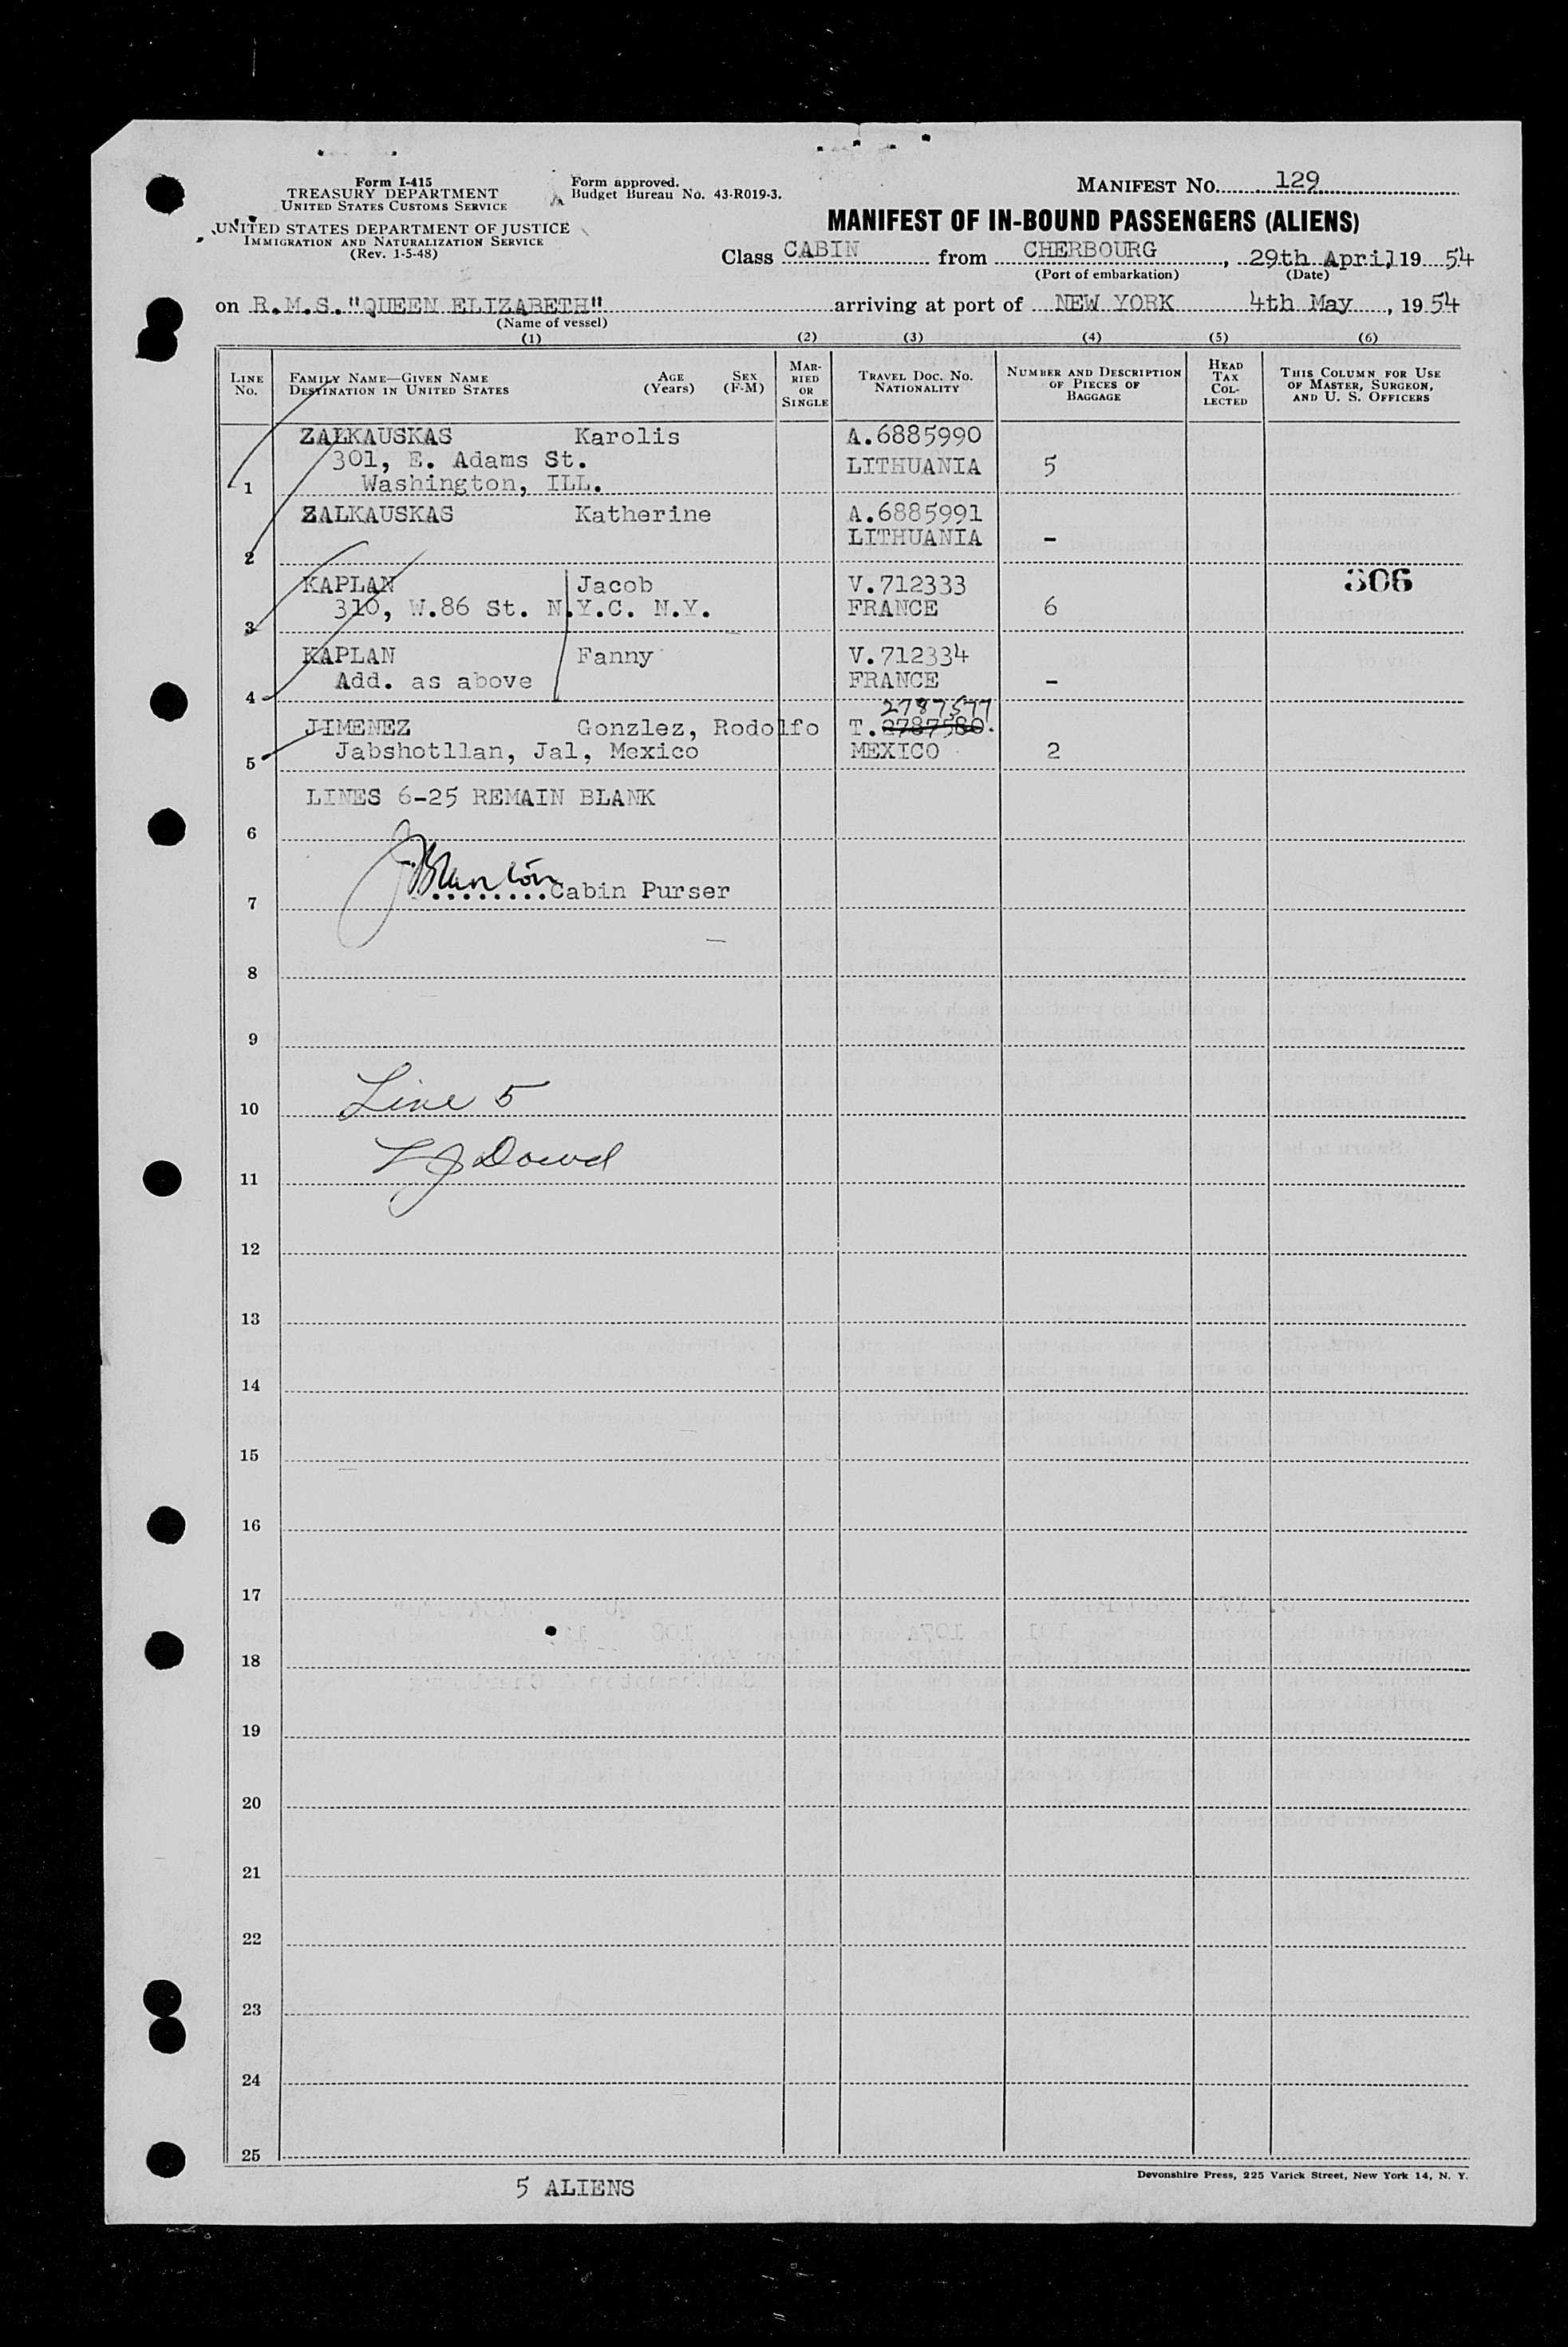 Form I-415
TREASURY DEPARTMENT
UNITED STATES CUSTOMS SERVICE
UNITED STATES DEPARTMENT OF JUSTICE
IMMIGRATION AND NATURALIZATION SERVICE
(Rev. 1-5-48)
Form approved.
Budget Bureau No. 43-R019-3.
MANIFEST No. 129
MANIFEST OF IN-BOUND PASSENGERS (ALIENS)
Class CABIN from CHERBOURG, 29th April, 19 54
(Port of embarkation) (Date)
on R.M.S. "QUEEN ELIZABETH" arriving at port of NEW YORK 4th May, 19 54
(Name of vessel)
(1) (2) (3) (4) (5) (6)
LINE No. FAMILY NAME—GIVEN NAME DESTINATION IN UNITED STATES AGE (Years) SEX (F-M) MARRIED OR SINGLE TRAVEL DOC. NO. NATIONALITY NUMBER AND DESCRIPTION OF PIECES OF BAGGAGE HEAD TAX COLLECTED THIS COLUMN FOR USE OF MASTER, SURGEON, AND U. S. OFFICERS
ZALKAUSKAS Karolis A.6885990
301, E. Adams St. LITHUANIA 5
1 Washington, ILL.
ZALKAUSKAS Katherine A.6885991
LITHUANIA -
2
KAPLAN Jacob V.712333 306
310, W.86 St. N.Y.C. N.Y. FRANCE 6
3
KAPLAN Fanny V.712334
Add. as above FRANCE -
4
2787577
JIMENEZ Gonzlez, Rodolfo T.2787580.
Jabshotllan, Jal, Mexico MEXICO 2
5
LINES 6-25 REMAIN BLANK
6
........Cabin Purser
7
8
9
Line 5
10
L J Dowd
11
12
13
14
15
16
17
18
19
20
21
22
23
24
25
5 ALIENS
Devonshire Press, 225 Varick Street, New York 14, N. Y.